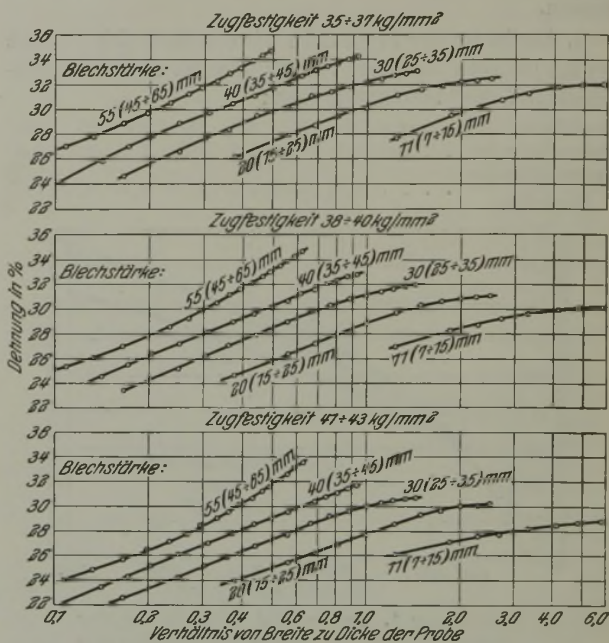 Zugfestigkeit 35÷37 kg/mm²
36
34
32
30
28
26
24
22
Blechstärke:
55 (45÷65) mm
40 (35÷45) mm
30 (25÷35) mm
20 (15÷25) mm
11 (7÷15) mm
Zugfestigkeit 38÷40 kg/mm²
36
34
32
30
28
26
24
22
Dehnung in %
Blechstärke:
55 (45÷65) mm
40 (35÷45) mm
30 (25÷35) mm
20 (15÷25) mm
11 (7÷15) mm
Zugfestigkeit 41÷43 kg/mm²
36
34
32
30
28
26
24
22
Blechstärke:
55 (45÷65) mm
40 (35÷45) mm
30 (25÷35) mm
20 (15÷25) mm
11 (7÷15) mm
0,1 0,2 0,3 0,4 0,6 0,8 1,0 2,0 3,0 4,0 6,0
Verhältnis von Breite zu Dicke der Probe